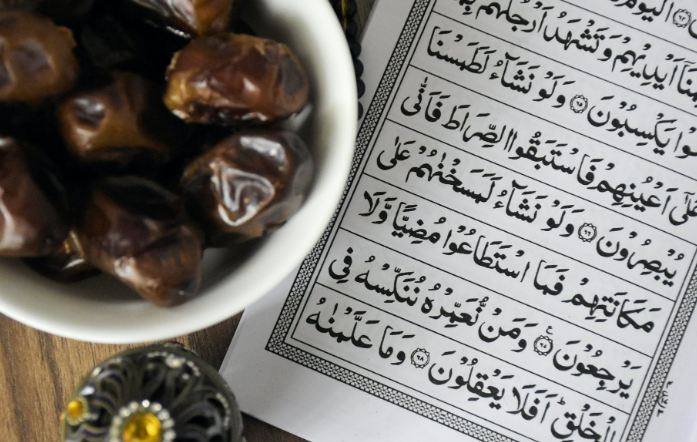 اَلْيَوْمَ
اَيْدِيْهِمْ وَتَشْهَدُ اَرْجُلُهُمْ
يَكْسِبُوْنَ ﴿٦٥﴾ وَلَوْ نَشَآءُ لَطَمَسْنَا
عَلٰٓى اَعْيُنِهِمْ فَاسْتَبَقُوا الصِّرَاطَ فَاَنّٰى
يُبْصِرُوْنَ ﴿٦٦﴾ وَلَوْ نَشَآءُ لَمَسَخْنٰهُمْ عَلٰى
مَكَانَتِهِمْ فَمَا اسْتَطَاعُوْا مُضِيًّا وَّلَا
يَرْجِعُوْنَ ﴿٦٧﴾ وَمَنْ نُّعَمِّرْهُ نُنَكِّسْهُ فِى
الْخَلْقِ ؕ اَفَلَا يَعْقِلُوْنَ ﴿٦٨﴾ وَمَا عَلَّمْنٰهُ